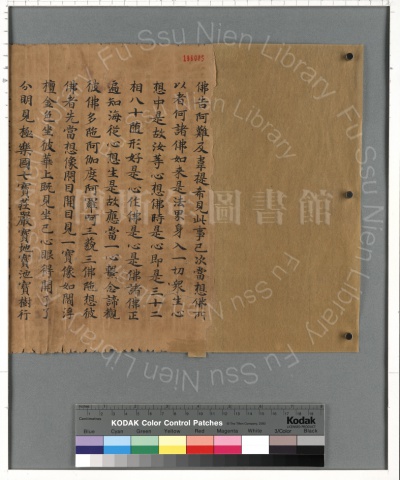 188095
佛告阿難及韋提希見此事已次當想佛所
以者何諸佛如來是法界身入一切衆生心
想中是故汝等心想佛時是心即是三十二
相八十隨形好是心作佛是心是佛諸佛正
遍知海從心想生是故應當一心繫念諦觀
彼佛多陁阿伽度阿羅呵三藐三佛陁想彼
佛者先當想像閇目開目見一寶像如閻浮
檀金色坐彼華上既見坐已心眼得開了了
分明見極樂國七寶莊嚴寶地寶池寶樹行
Fu Ssu Nien Library
館書圖
KODAK Color Control Patches
Kodak
Blue Cyan Green Yellow Red Magenta White 3/Color Black